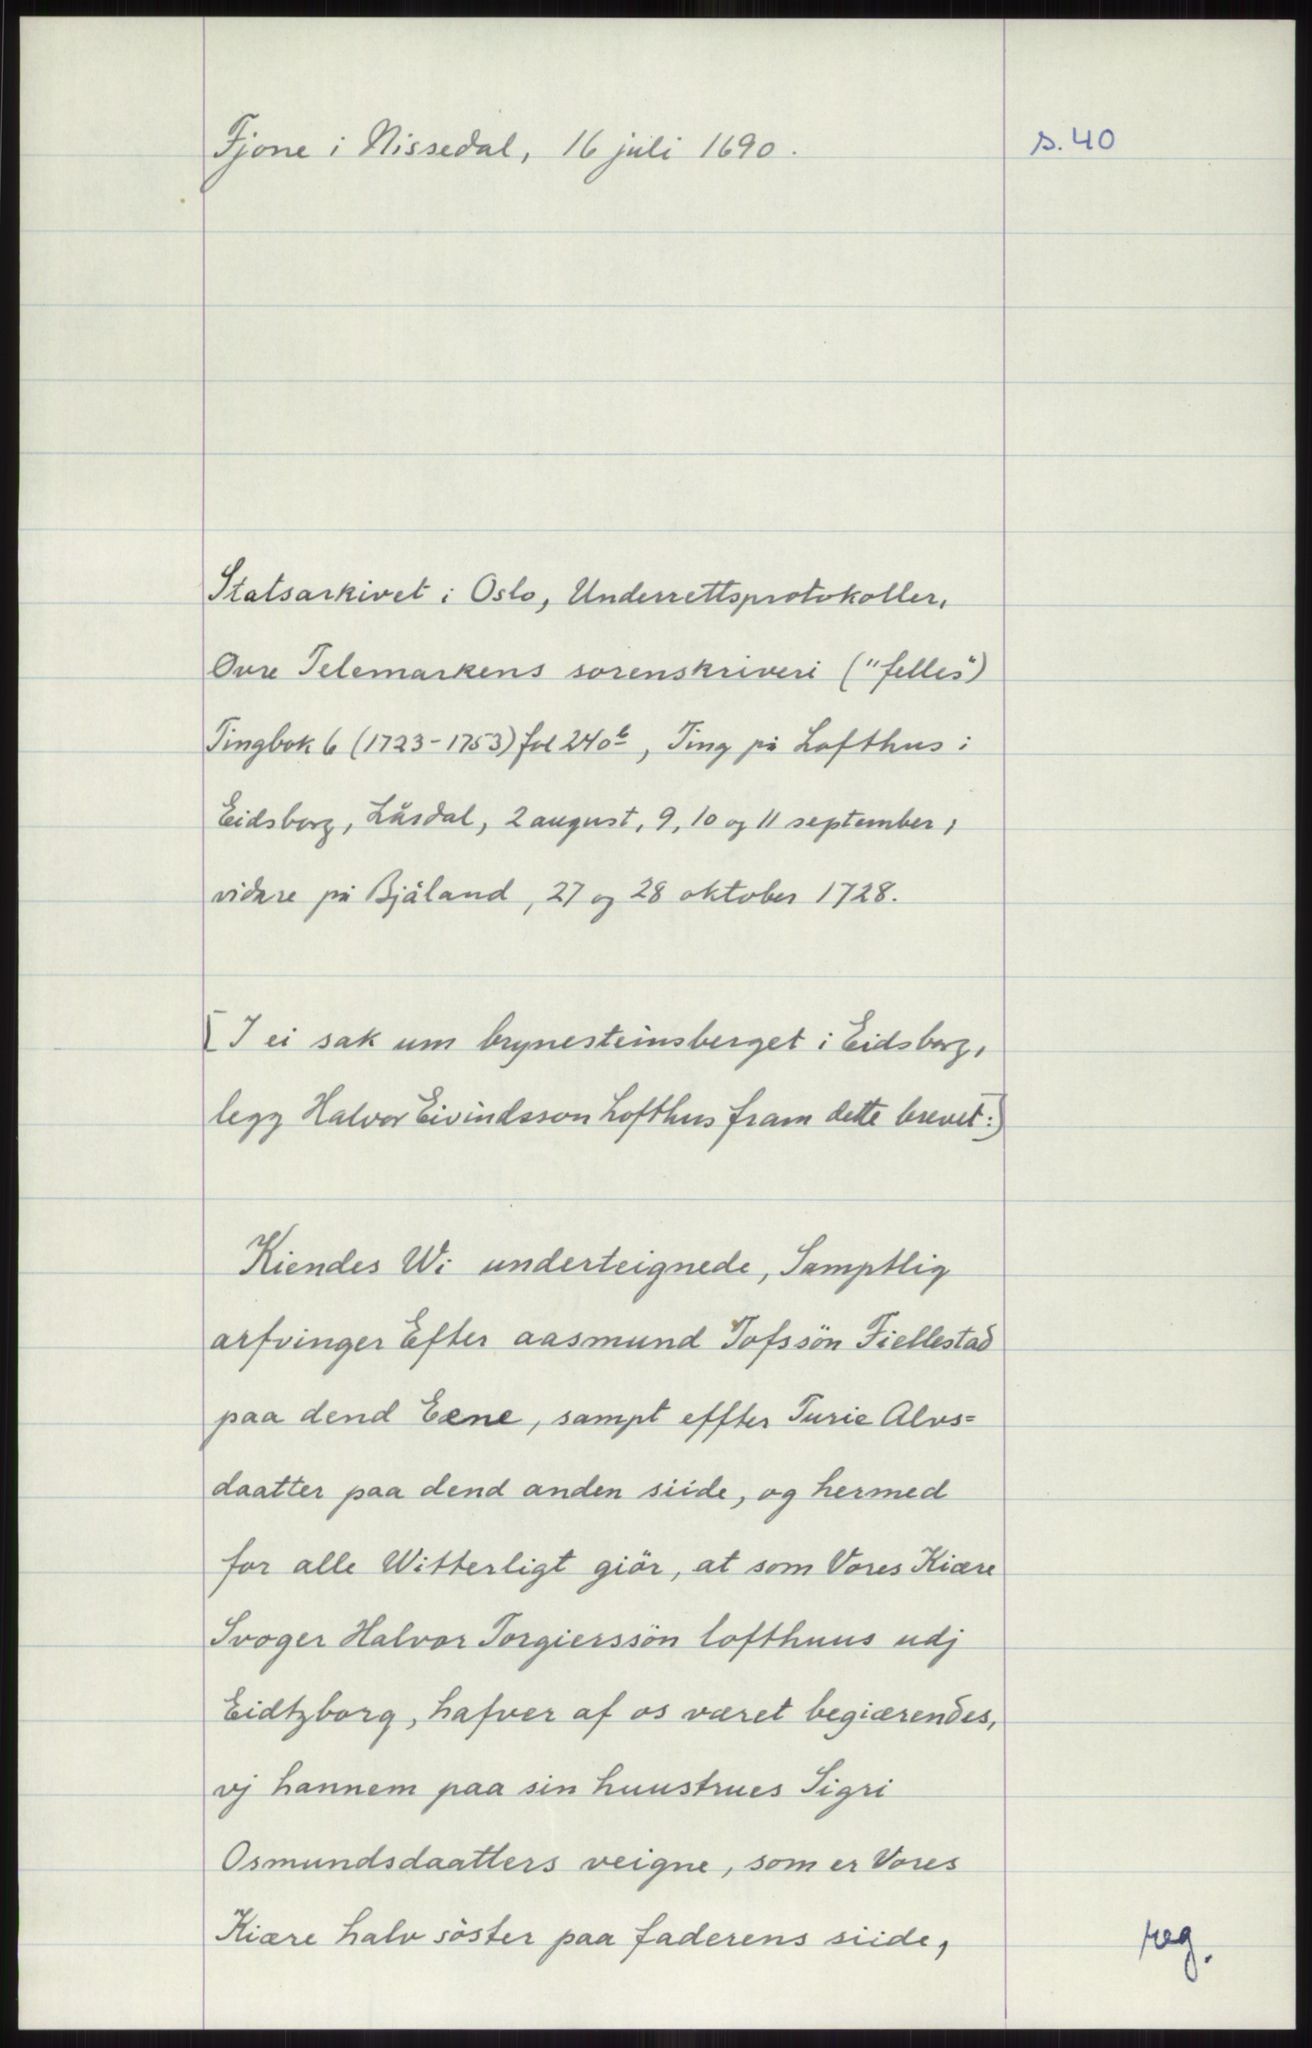 Fjone i Nissedal, 16 juli 1690.
s. 40
Statsarkivet i Oslo, Underrettsprotokoller,
Øvre Telemarkens sorenskriveri ("felles")
Tingbok 6 (1723-1753) fol 240b, Ting på Lofthus i
Eidsborg, Lårdal, 2 august, 9, 10 og 11 september,
vidare på Bjåland, 27 og 28 oktober 1728.
[I ei sak um brynesteinsberget i Eidsborg,
legg Halvor Eivindsson Lofthus fram dette brevet:]
Kiendes Wi underteignede, Samptlig
arfvinger Efter aasmund Tofssön Fiellestad
paa dend Eene, sampt effter Turie Alvs=
daatter paa dend anden siide, og hermed
for alle Witterligt giör, at som Vores Kiære
Svoger Halvor Torgierssön lofthuus udj
Eidtzborg, hafver af os været begiærendes,
vj hannem paa sin huustrues Sigri
Osmundsdaatters veigne, som er Vores
Kiære halv söster paa faderens siide,
reg.